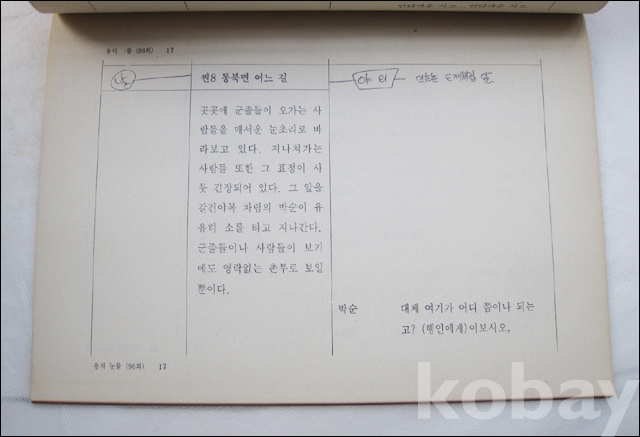 용의 눈물 (96회) 17
낮
씬8 동북면 어느 길
야외
곳곳에 군졸들이 오가는 사
람들을 매서운 눈초리로 바
라보고 있다. 지나쳐가는
사람들 또한 그 표정이 사
뭇 긴장되어 있다. 그 앞을
갈건야복 차림의 박순이 유
유히 소를 타고 지나간다.
군졸들이나 사람들이 보기
에도 영락없는 촌부로 보일
뿐이다.
박순 대체 여기가 어디 쯤이나 되는
고? (행인에게)이보시오,
용의 눈물 (96회) 17
kobay